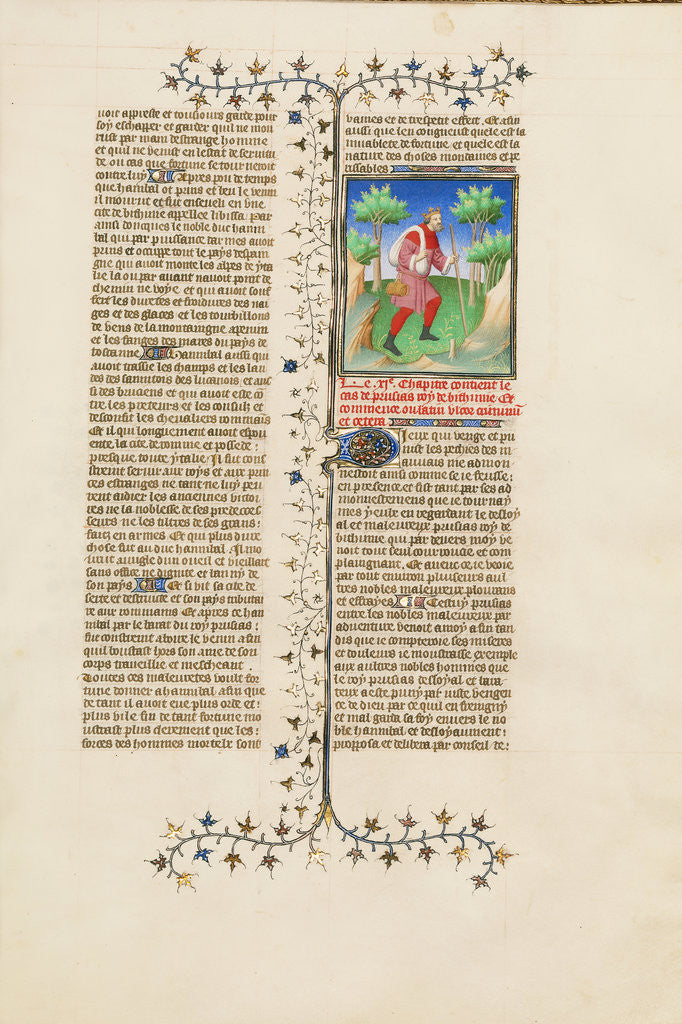 uoit appreste et tousiours garde pour
soy eschapper et garder quil ne mou
rust par main destrange homme
et quil ne venist en lestat de seruitu
de ou cas que fortune se tournetoit
contre luy Apres pou de temps
que hanibal ot prins et beu le venin
il mourut et fut enseueli en vne
cite de bithune appellee libissa. Par
ainsi doncques le noble duc hanni
bal qui par puissance darmes auoit
prins et occuppe tout le pays despai
gne qui auoit monte les alpes de yta
lie la ou par auant nauoit point de
chemin ne voye et qui auoit souf
fert les duretes et froidures des nai
ges et des glaces et les tourbillons
de vens de la montaingne apenin
et les fanges des mares du pays de
toscanne Hannibal aussi qui
auoit trassie les champs et les lan
des des samnitois des lucanois et auf
si des bruciens et qui auoit este co
tre les preteurs et les consulz et
desconfit les cheualiers rommains
Et il qui longuement auoit espou
ente la cite de romme et possede
presque toute ytalie Il fut cont
straint seruir aux roys et aux prin
ces estranges ne tant ne luy peu
rent aidier les anciennes victoi
res ne la noblesse de ses predeces
seurs ne les tiltres de ses grans
faiz en armes Et qui plus dure
chose fut au duc hannibal. Il mo
urut auugle dun oueil et vieillart
sans office ne dignite et banny de
son pays Et si vit sa cite de
serte et destruite et son pays tributai
re aux rommains Et apres ce han
nibal par le barat du roy prusias
fut constraint aboire le venin afin
quil boutast hors son ame de son
corps traueillie et mescheant
Toutes ces maleuretes voult for
tune donner a hannibal afin que
de tant il auoit eue plus orde et
plus vile fin de tant fortune mo
strast plus clerement que les
forces des hommes mortelz sont
vaines et de trespetit effect. Et afin
aussi que len congneust quele est la
muablete de fortune et quele est la
nature des choses mondaines et pe
rissables
Le .xie. Chapitre contient le
cas de prusias roy de bithinie. Et
commence ou latin vltor criminum
et cetera
Dieux qui venge et pu
nist les pechies des m
auuais me admon
nestoit ainsi comme se ie feusse
en presence et fut tant par ses ad
monnestemens que ie tournay
mes yeulx en regardant le desloy
al et maleureux prusias roy de
bithinie qui par deuers moy ve
noit tout seul courrouce et com
plaingnant. Et auecce ie veoie
par tout enuiron pluseurs aul
tres nobles maleureux plourans
et effrayes Cestuy prusias
entre les nobles maleureux par
aduenture venoit amoy afin tan
dis que ie compteroie ses miseres
et douleurs ie moustrasse exemple
aux aultres nobles hommes que
le roy prusias desloyal et bara
teux a este puny par iuste vengen
ce de dieu par ce quil en freingny
et mal garda sa foy enuers le no
ble hannibal et desloyaument
proposa et delibera par conseil de